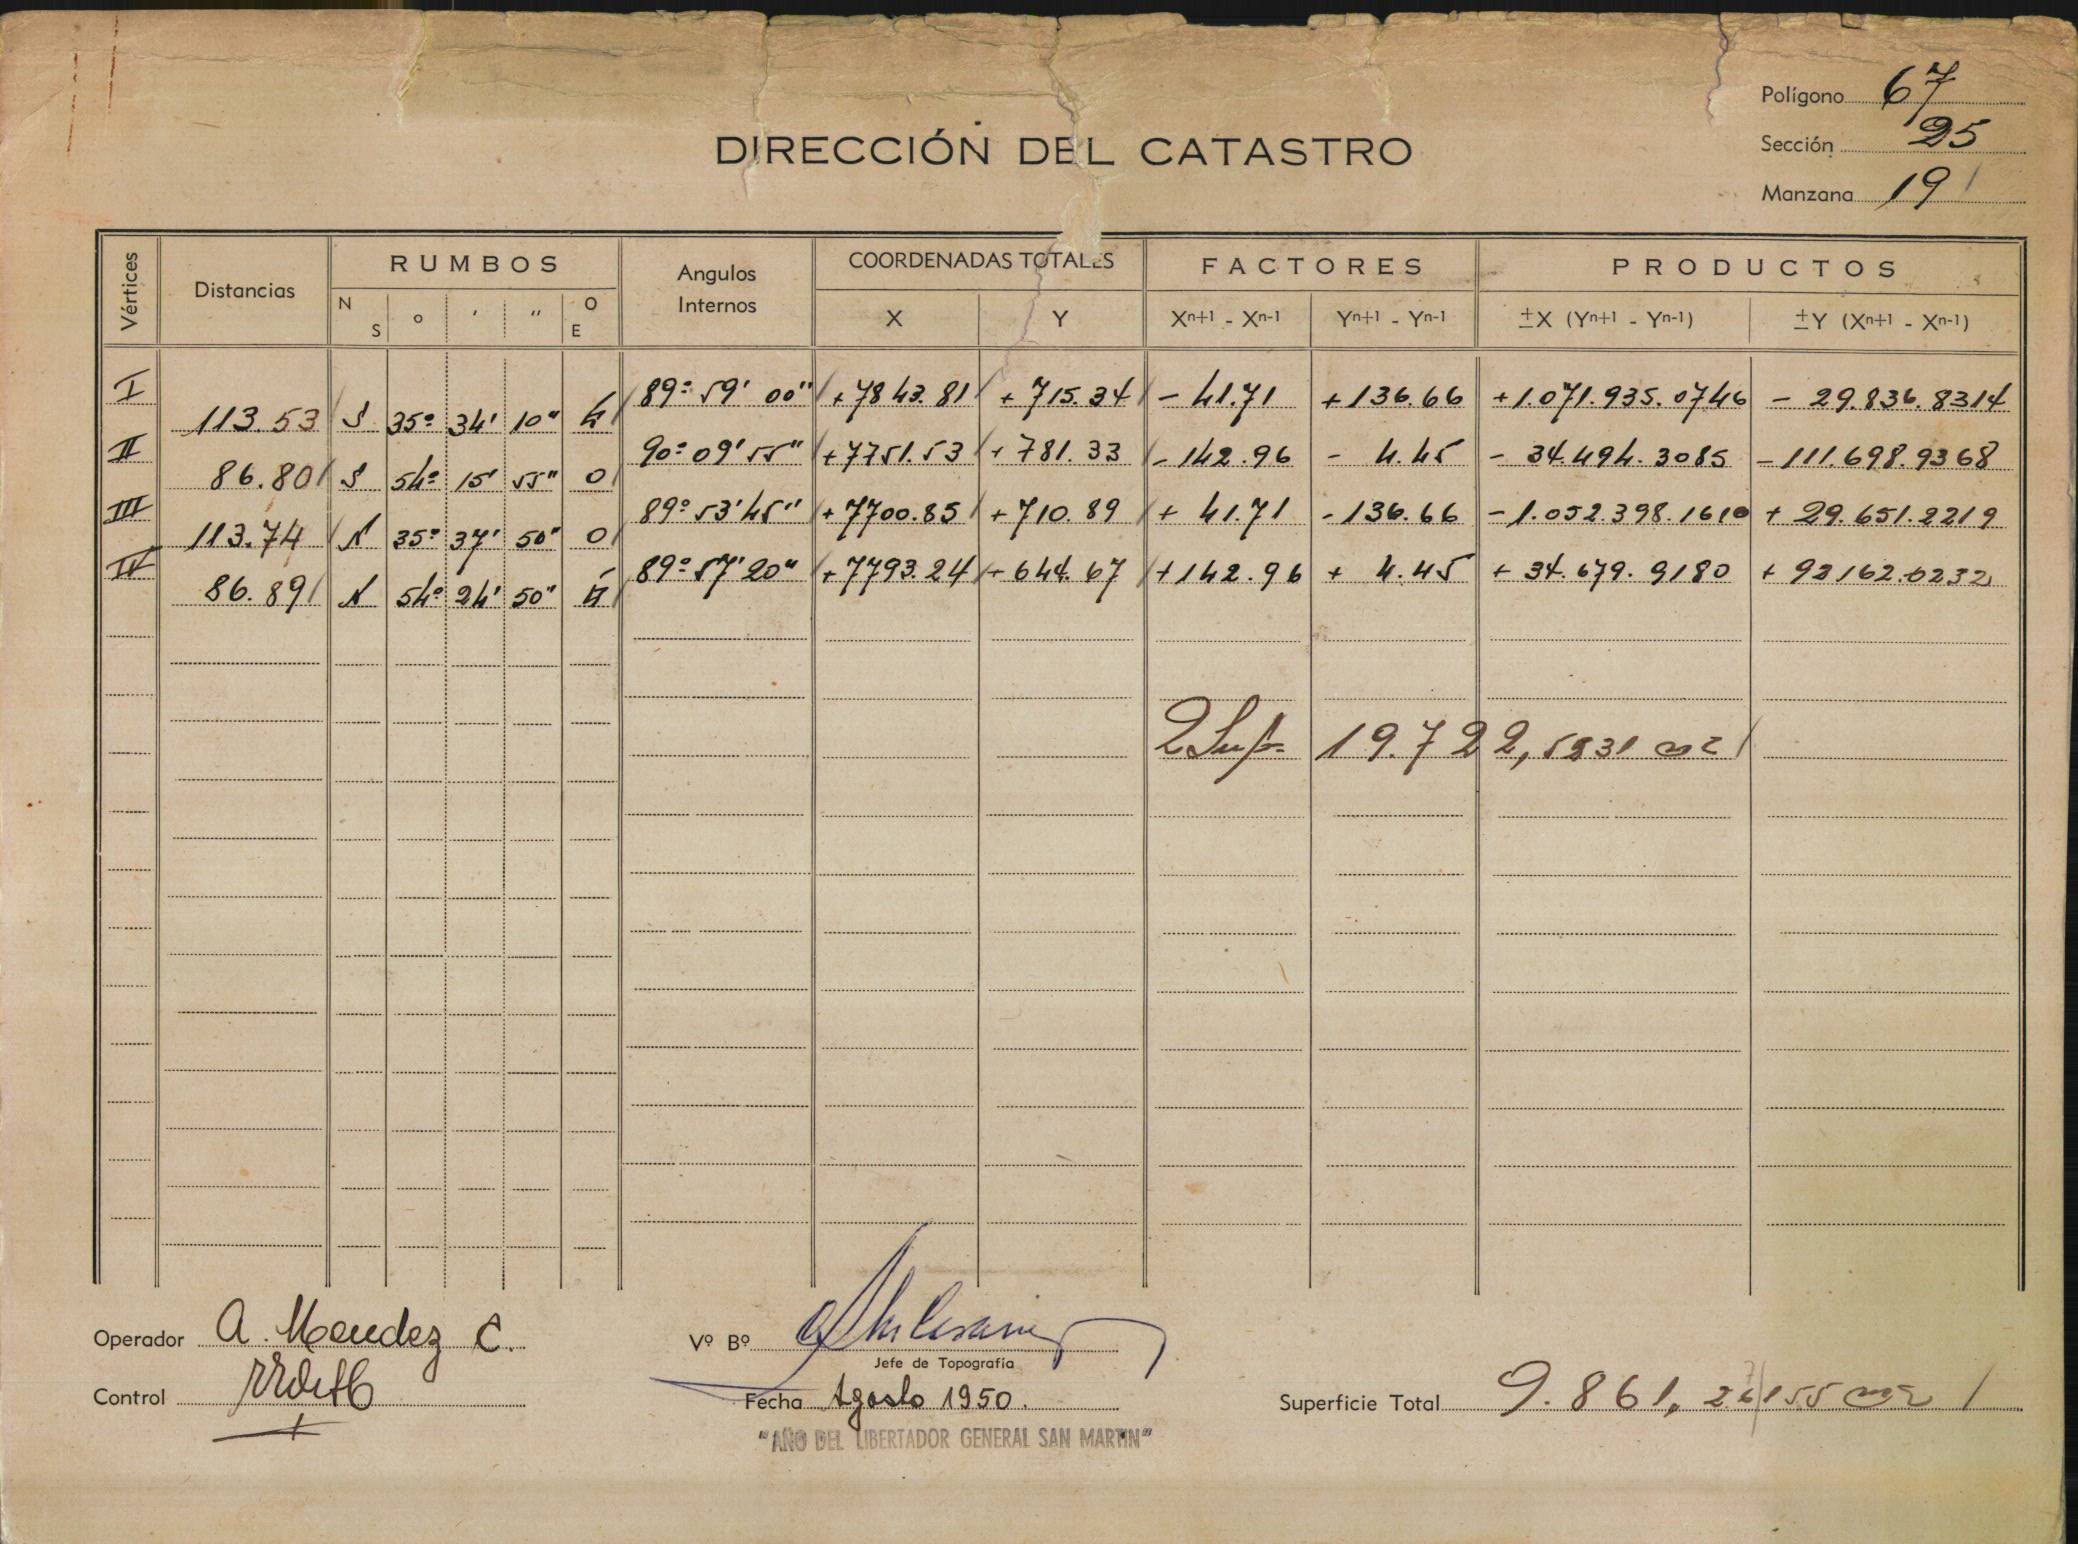 Polígono 67
DIRECCIÓN DEL CATASTRO
Sección 25
Manzana 19
Vértices Distancias RUMBOS N S ° ' '' O E Angulos Internos COORDENADAS TOTALES X Y FACTORES Xn+1 - Xn-1 Yn+1 - Yn-1 PRODUCTOS ±X (Yn+1 - Yn-1) ±Y (Xn+1 - Xn-1)
I 89° 59' 00" +7843.81 +715.34 -41.71 +136.66 +1.071.935.0746 -29.836.8314
113.53 S 35° 34' 10" E
II 90° 09' 55" +7751.53 +781.33 -142.96 -4.45 -34.494.3085 -111.698.9368
86.80 S 54° 15' 55" O
III 89° 53' 45" +7700.85 +710.89 +41.71 -136.66 -1.052.398.1610 +29.651.2219
113.74 N 35° 37' 50" O
IV 89° 57' 20" +7793.24 +644.67 +142.96 +4.45 +34.679.9180 +92162.0232
86.89 N 54° 24' 50" E
2 Sup. 19.722,5231 m2
Operador A. Mendez C.
Vº Bº
Jefe de Topografía
Control
Fecha Agosto 1950.
Superficie Total 9.861, m2
"AÑO DEL LIBERTADOR GENERAL SAN MARTIN"